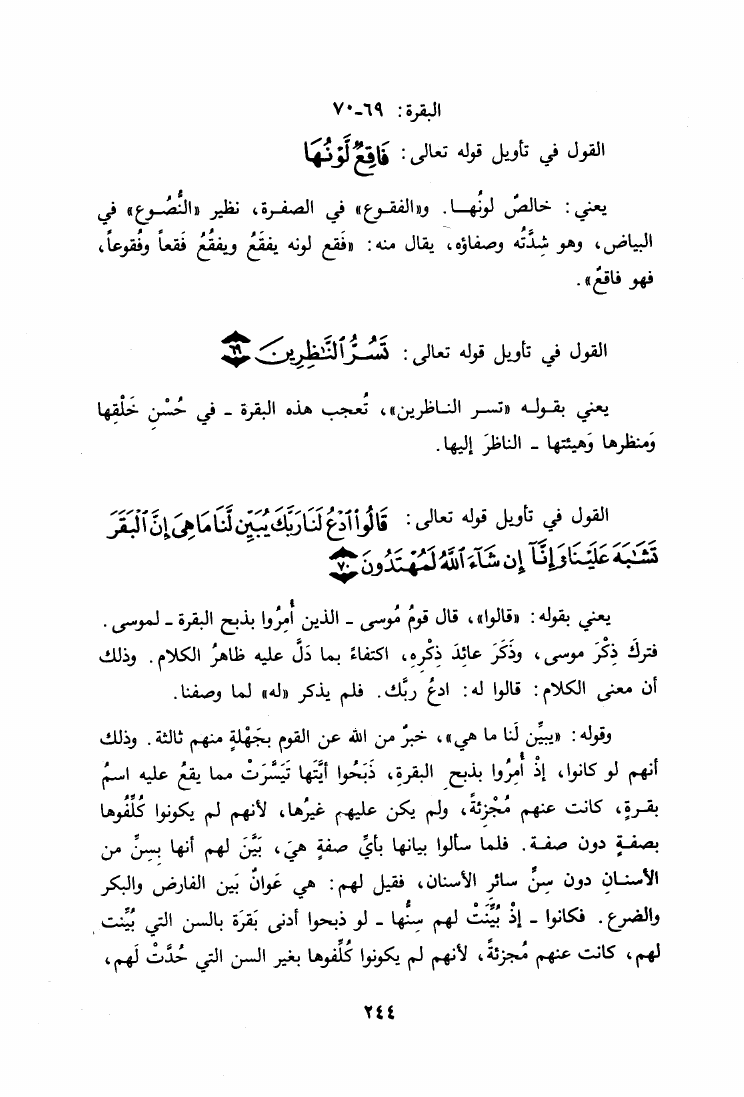 البقرة: ٦٩-٧٠
القول في تأويل قوله تعالى: فَاقِعٌ لَّوْنُهَا
يعني: خالصٌ لونُهـا. و«الفقـوع» في الصفـرة، نظير «النُّصُـوع» في
البياض، وهو شِدَّتُه وصفاؤه، يقال منه: «فَقع لونه يفقَعُ ويفقُعُ فَقعاً وفُقوعاً،
فهو فاقعٌ».
القول في تأويل قوله تعالى: تَسُرُّ ٱلنَّٰظِرِينَ ٦٩
يعني بقولـه «تسـر النـاظرين»، تُعجب هذه البقرة - في حُسْنِ خَلْقِها
وَمنظرها وَهيئتها - الناظرَ إليها.
القول في تأويل قوله تعالى: قَالُوا۟ ٱدْعُ لَنَا رَبَّكَ يُبَيِّن لَّنَا مَا هِىَ إِنَّ ٱلْبَقَرَ
تَشَٰبَهَ عَلَيْنَا وَإِنَّآ إِن شَآءَ ٱللَّهُ لَمُهْتَدُونَ ٧٠
يعني بقوله: «قالوا»، قال قومُ مُوسى - الذين أُمِرُوا بذبح البقرة - لموسى.
فتركَ ذِكْرَ موسى، وذَكَرَ عائِدَ ذِكْرِهِ، اكتفاءً بما دَلَّ عليه ظاهرُ الكلام. وذلك
أن معنى الكلام: قالوا له: ادعُ ربَّك. فلم يذكر «له» لما وصفنا.
وقوله: «يبيِّن لَنا ما هي»، خبرٌ من الله عن القوم بجَهْلةٍ منهم ثالثة. وذلك
أنهم لو كانوا، إذْ أُمِرُوا بذبح البقرةِ، ذَبَحُوا أيَّتها تَيَسَّرَتْ مما يقعُ عليه اسمُ
بقـرةٍ، كانت عنهم مُجْزِئةً، ولم يكن عليهم غيرُها، لأنهم لم يكونوا كُلِّفُوها
بصفـةٍ دون صفـة. فلما سألوا بيانها بأيِّ صفةٍ هيَ، بَيَّنَ لهم أنها بِسِنٍّ من
الأسنـانِ دون سِنِّ سائر الأسنان، فقيل لهم: هي عَوانٌ بَين الفارض والبكر
والضرع. فكانوا - إذْ بُيِّنَتْ لهم سِنُّها - لو ذبحوا أدنى بَقرَة بالسن التي بُيِّنت
لهم، كانت عنهم مُجزئةً، لأنهم لم يكونوا كُلِّفوها بغير السن التي حُدَّتْ لَهم،
٢٤٤